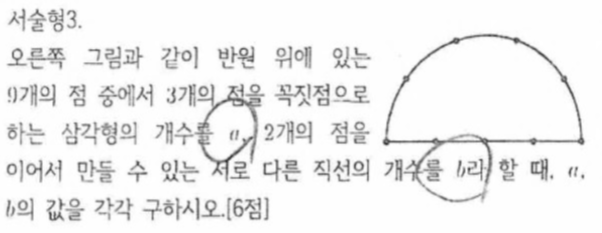 서술형3.
오른쪽 그림과 같이 반원 위에 있는
9개의 점 중에서 3개의 점을 꼭짓점으로
하는 삼각형의 개수를 a, 2개의 점을
이어서 만들 수 있는 서로 다른 직선의 개수를 b라 할 때, a,
b의 값을 각각 구하시오.[6점]